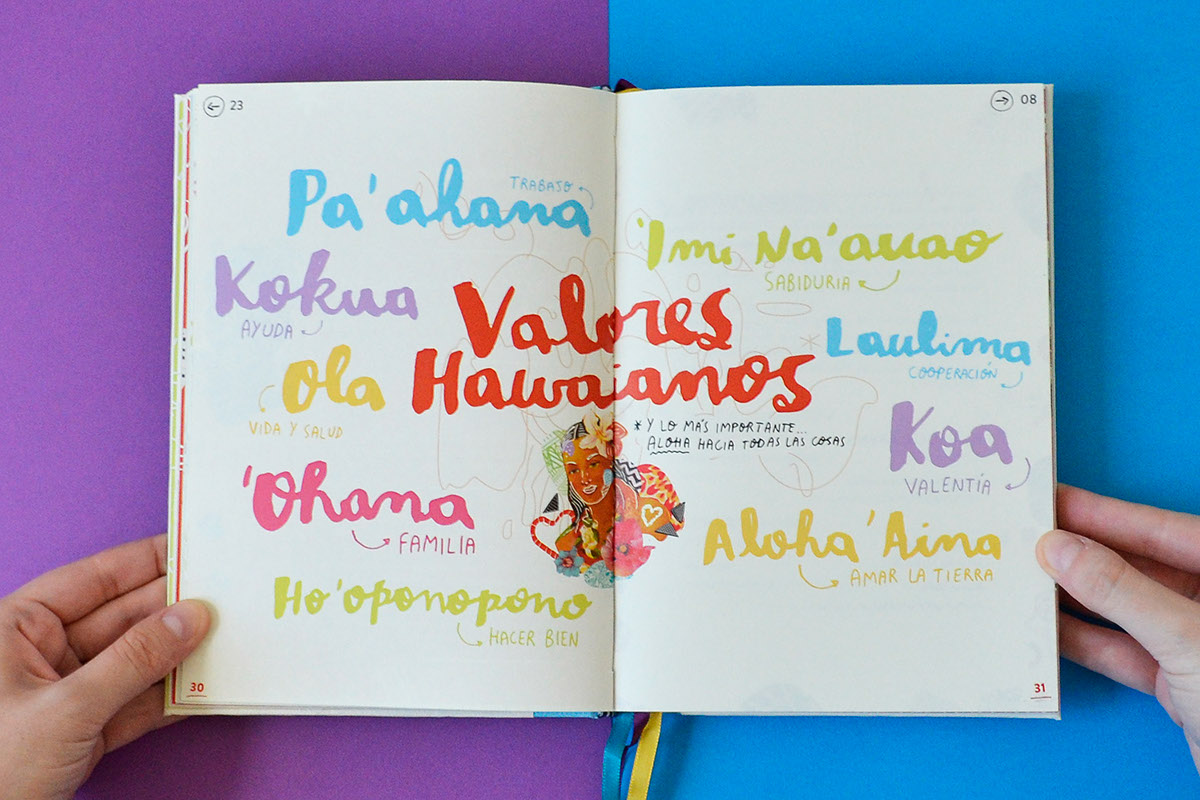 23
Pa'ahana
TRABAJO
Kokua
AYUDA
Ola
VIDA Y SALUD
'Ohana
FAMILIA
Ho'oponopono
HACER BIEN
30
Valores
Hawaianos
* Y LO MÁS IMPORTANTE...
ALOHA HACIA TODAS LAS COSAS
08
'Imi Na'auao
SABIDURIA
Laulima
COOPERACIÓN
Koa
VALENTÍA
Aloha 'Aina
AMAR LA TIERRA
31